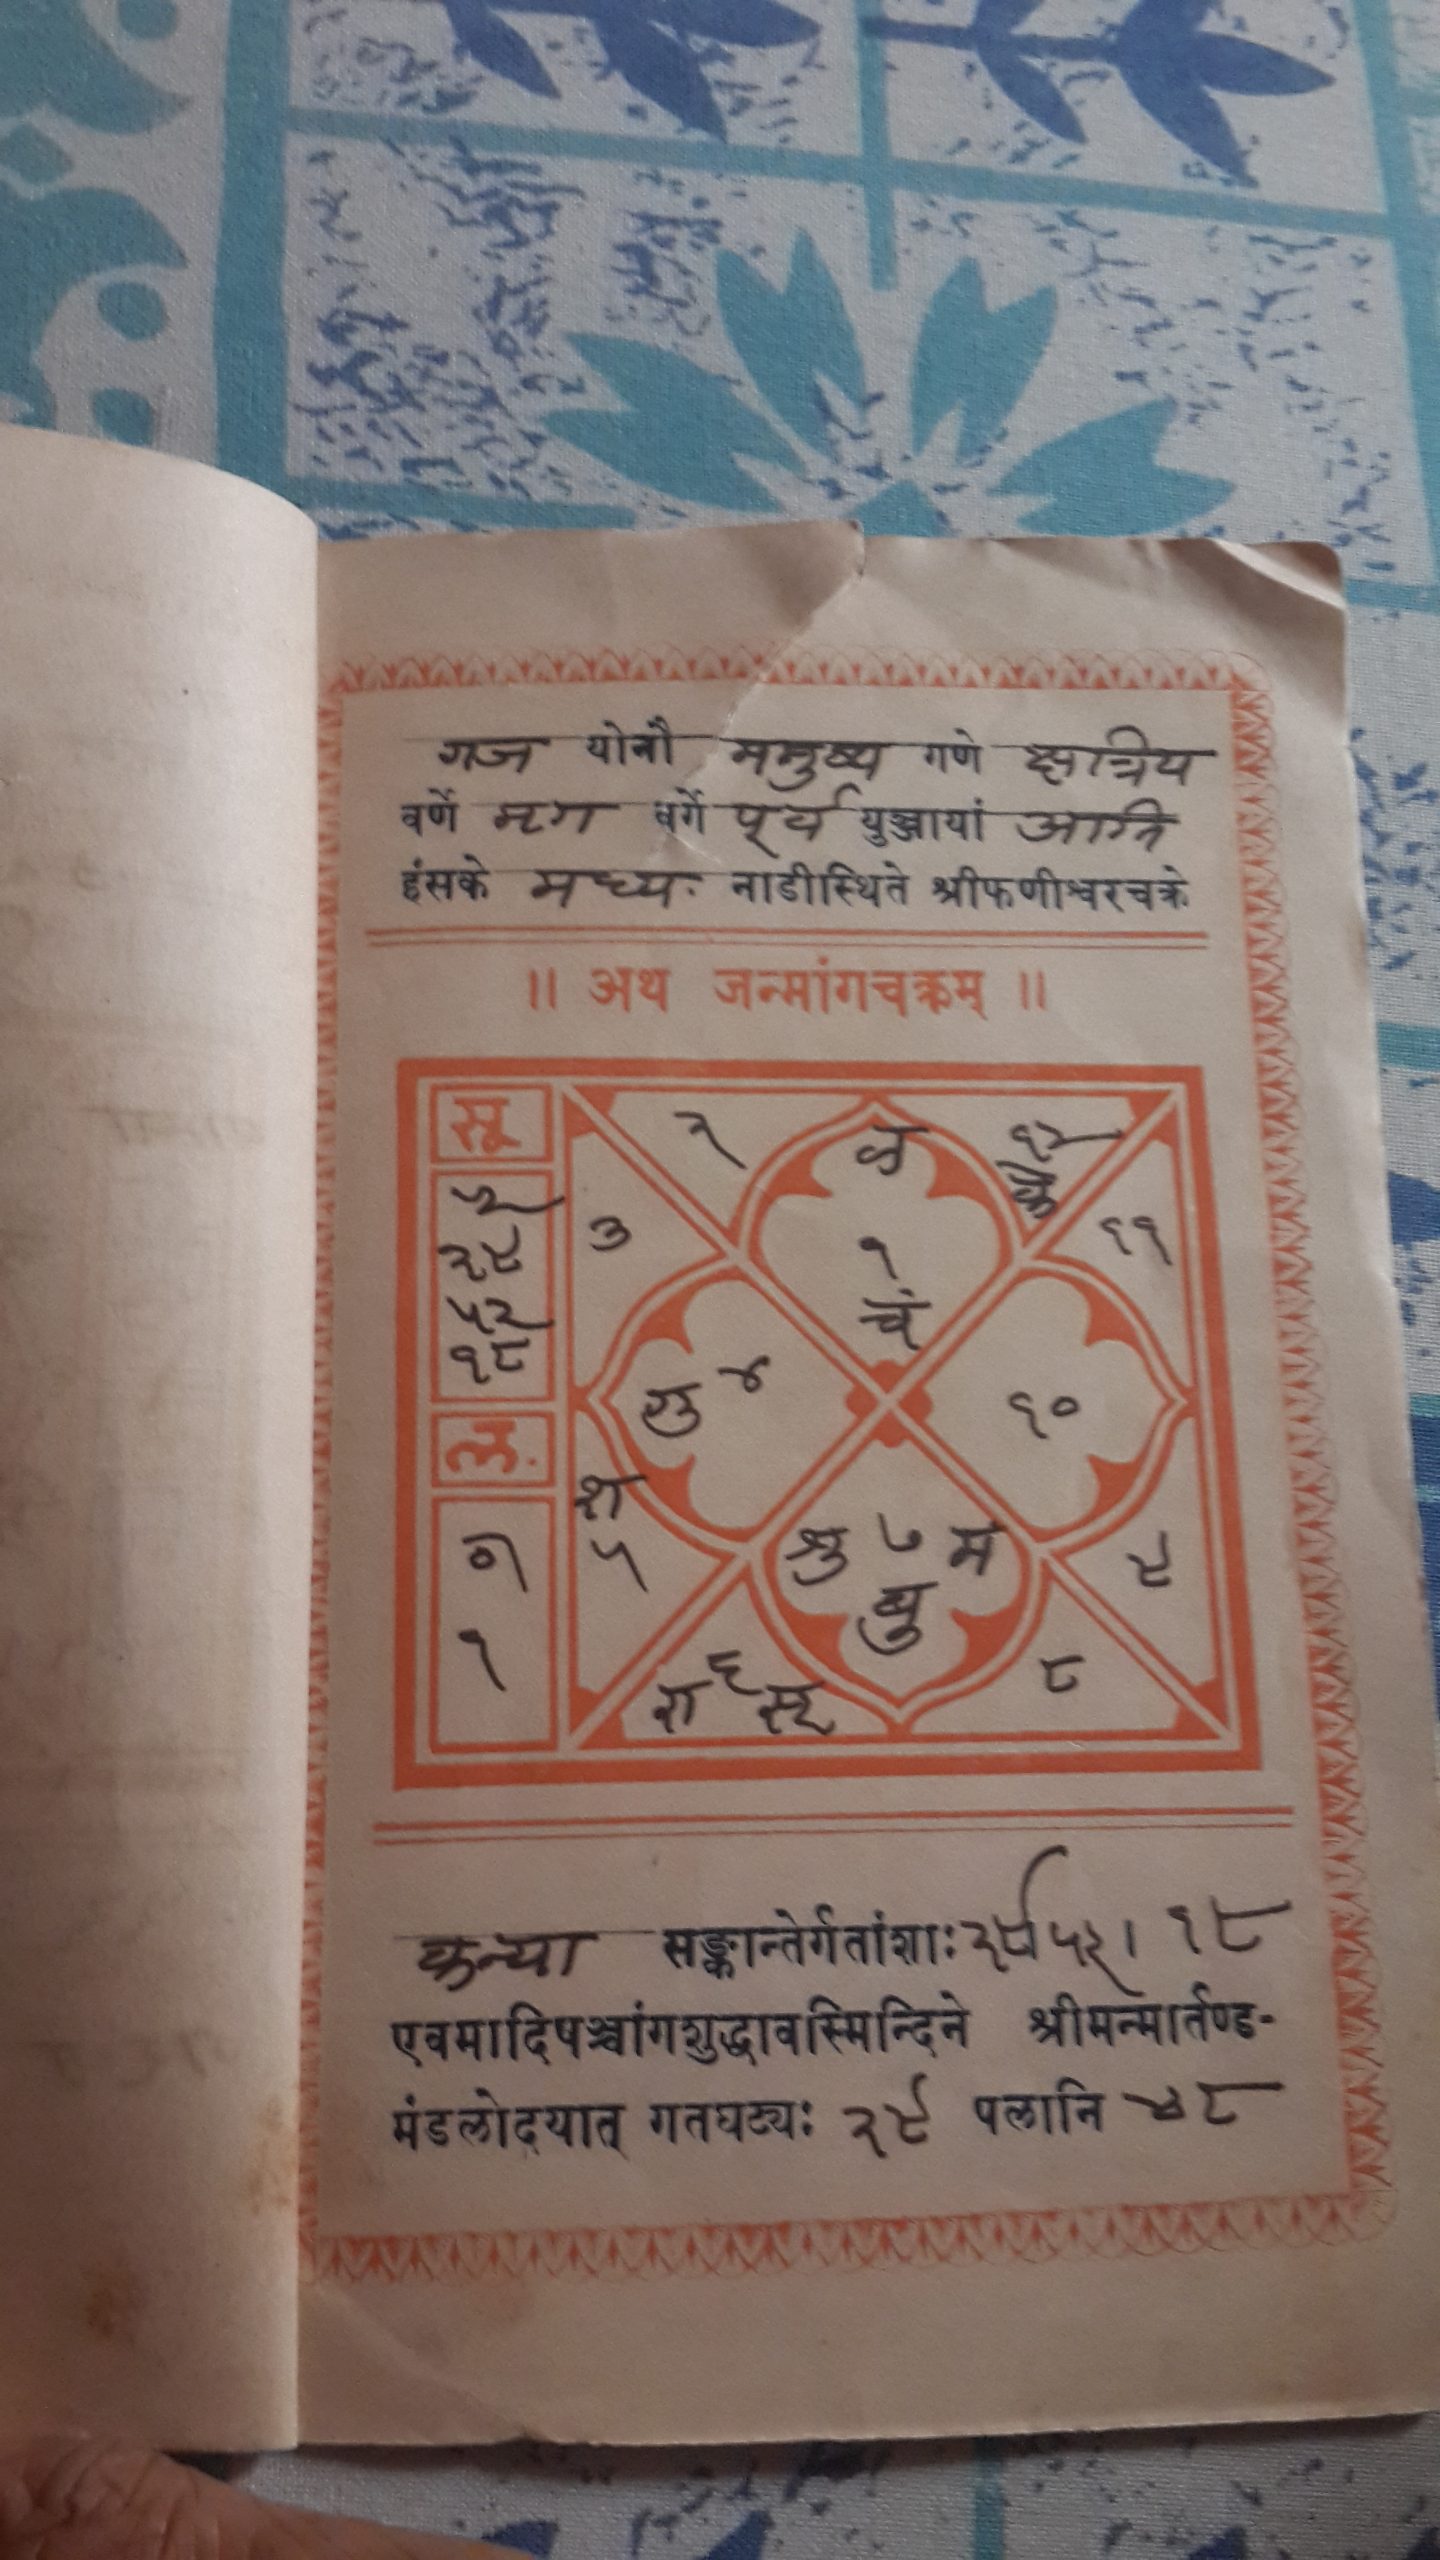 गज योनौ मनुष्य गणे क्षत्रिय
वर्णे मृग वर्गे पूर्व युञ्जायां अग्नि
हंसके मध्य नाडीस्थिते श्रीफणीश्वरचक्रे
॥ अथ जन्मांगचक्रम् ॥
सू
५
२९
५२
१८
ल.
०
१
२
ल
१
चं
१२
के
३
११
गु ४
१०
श
५
शु ७ मं
बु
९
रा ६ सू
८
कन्या सङ्क्रान्तेर्गतांशाः २९।५२।१८
एवमादिपञ्चांगशुद्धावस्मिन्दिने श्रीमन्मार्तण्ड-
मंडलोदयात् गतघट्यः २९ पलानि ४८